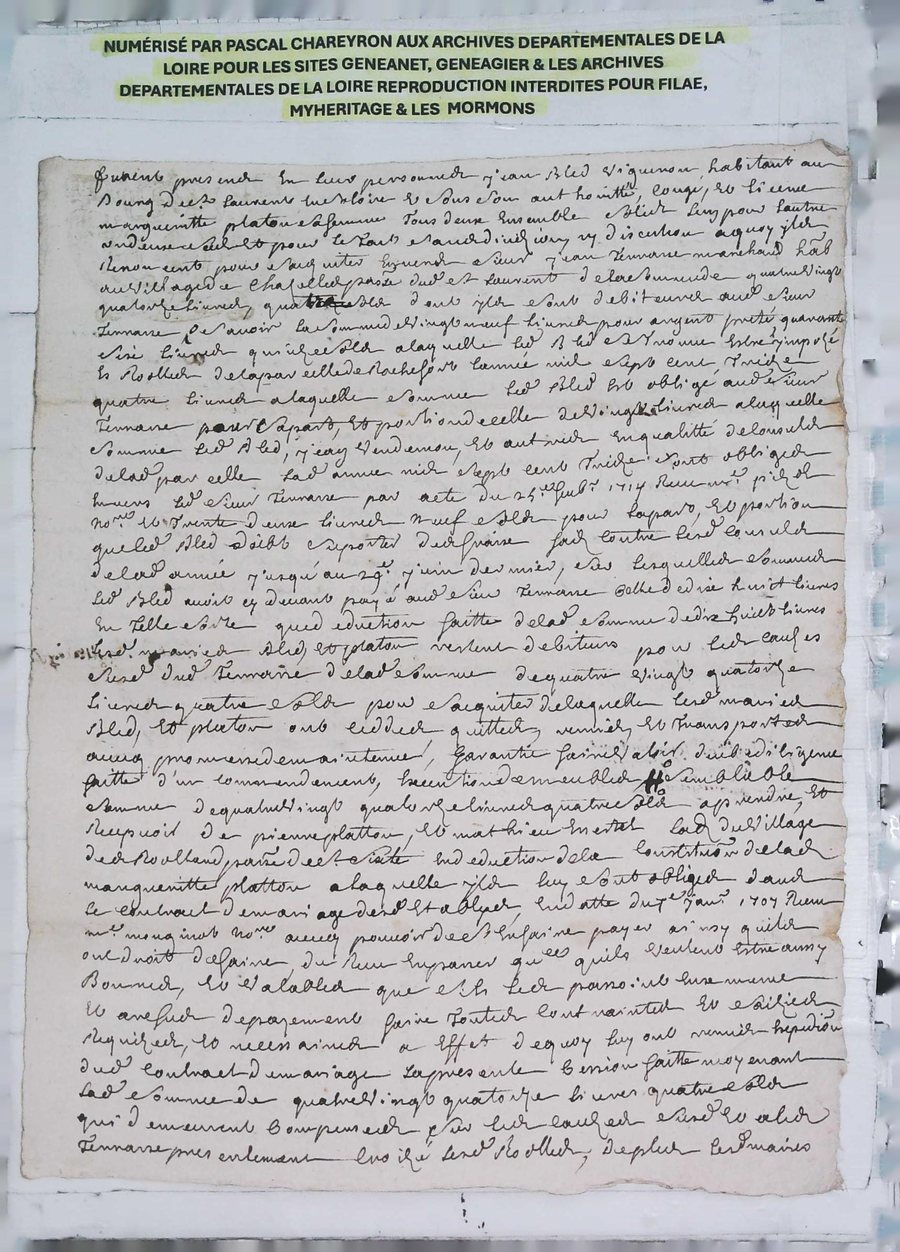 NUMÉRISÉ PAR PASCAL CHAREYRON AUX ARCHIVES DEPARTEMENTALES DE LA
LOIRE POUR LES SITES GENEANET, GENEAGIER & LES ARCHIVES
DEPARTEMENTALES DE LA LOIRE REPRODUCTION INTERDITES POUR FILAE,
MYHERITAGE & LES MORMONS
furent presents en leur personnes jean bled vigneron habitant au
bourg de st laurent et de son authorité, congé, et licence
margueritte platon sa femme tous deux ensemble solid lun pour lautre
un deux seul et pour le tout sans division ny discution a quoy ils
renoncent, pour sacquiter envers sieur jean Terrasse marchand hab
au village de Chapelles parse dud st laurent de la somme de quatre vingt
quatorze livres, quatre sols dont ils sont debiteurs aud sieur
Terrasse Scavoir la somme de vingt neuf livres pour argent preté, quarante
six livres quinze sols a laquelle led bled se trouve estre imposé
es rolles de la parcelle de Rochefort lannée mil sept cent treize
quatre livres a laquelle somme led bled est obligé aud sieur
Terrasse pour sa part, et portion de celle de vingt livres a laquelle
somme led bled, jean et autres en qualitté de consuls
de lad parcelle lad année mil sept cent treize sont obligés
envers led sieur Terrasse par acte du 25e 1714 receu me
nore et trente deux livres neuf sols pour sa part, et portion
que led bled doibt suporter des fraix faits contre lesd consuls
de lad année jusqu'au 29e juin dernier, sur lesquelles sommes
led bled auroit cy devant payé aud sieur Terrasse celle de dix huict livres
en telle sorte que deduction faitte de lad somme de dix huict livres
lesd mariés bled, et platon restent debiteurs pour les causes
susd dud Terrasse de lad somme de quatre vingt quatorze
livres quatre sols pour sacquiter de laquelle lesd mariés
bled, et platon ont ceddé quitté, remis et transporté
avecq promesse de maintenir, garantir faire valoir diligence
faitte d'un commandement, execution de meubles semblable
somme de quatre vingt quatorze livres quatre sols a prendre, et
recepvoir de pierre platton, et mathieu lad du village
de parse de st en deduction de la constitution de lad
margueritte platton a laquelle ils luy sont obligés dans
le contract de mariage desd et bled, en datte du 7e janr 1707 receu
me mouginot nore avecq pouvoir de s'en faire payer ainsy quils
ont droit de faire, du receu en passer qtces quils veulent estre aussy
bonnes, et valables que si les passoint eux meme
et a reffus de payement faire toutes contraintes et
requises, et necessaires a effet de quoy luy ont remis expedition
dud contract de mariage la presente cession faitte moyenant
lad somme de quatre vingt quatorze livres quatre sols
qui demeurent compensés sur les causes susd
Terrasse presentement lesd rolles, de plus lesd mariés